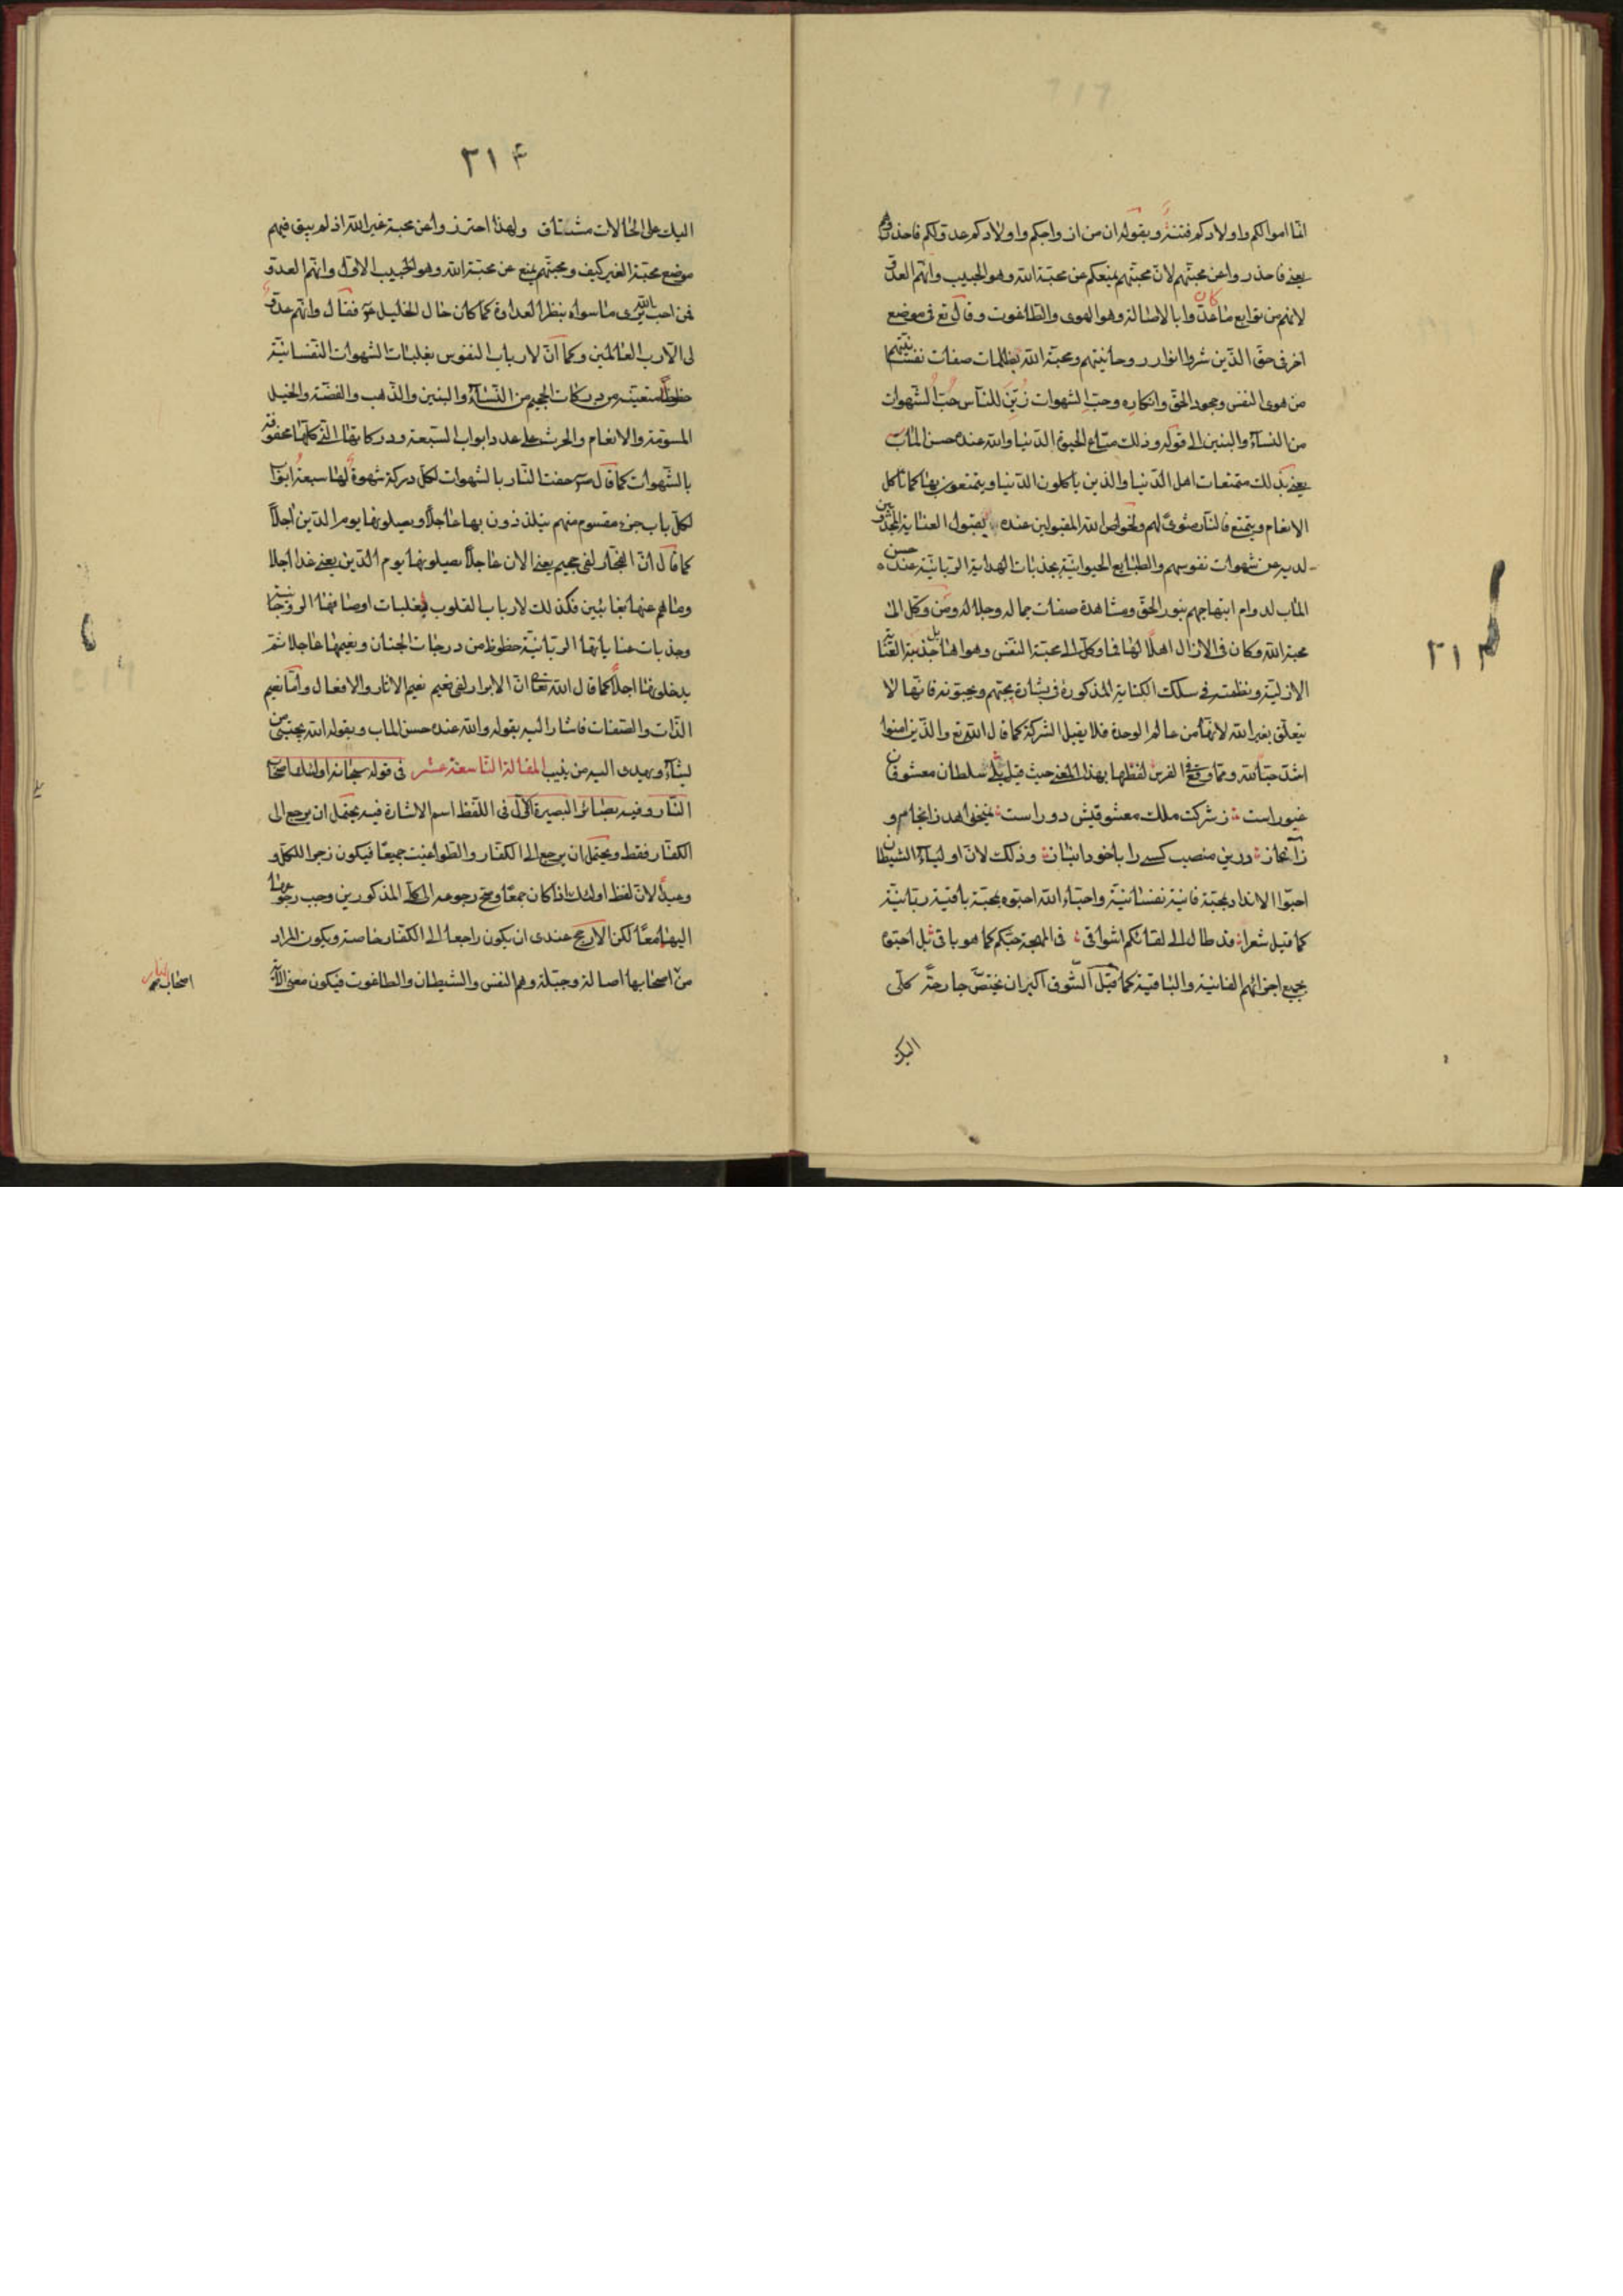 انما اموالكم واولادكم فتنة وبقوله ان من ازواجكم واولادكم عدوّ لكم فاحذروهم
يعنى فاحذروا عن محبتهم لانّ محبتهم يمنعكم عن محبّة الله وهو الحبيب وانّهم العدوّ
لانهم من توابع ما كان عدوّا بالاصالة وهو الهوى والطاغوت وقال تع فى موضع
اخر فى حقّ الذين شروا انوار روحانيتهم ومحبة الله بظلمات صفات نفسانيتهم
من هوى النفس وجحود الحق وانكاره وحبّ الشهوات زُيّنَ للناس حُبُّ الشّهوات
من النسآء والبنين الى قوله وذلك متاع الحيوة الدّنيا والله عنده حسن الماب
يعنى بذلك متمتعات اهل الدّنيا والذين ياكلون الدّنيا ويتمتعون بها كما تاكل
الانعام ويتمتع فالنار مثوىً لهم ولخواص الله المقبولين عنده بقبول العناية المجذوبين
لديه عن شهوات نفوسهم والطبايع الحيوانيّة بجذبات الهداية الربانيّة عنده حسن
الماب لدوام ابتهاجهم بنور الحق ومشاهدة صفات جماله وجلاله ومن وكل الى
محبة الله وكان فى الازال اهلًا لها فما وكل الى محبّة النفس وهواها بل جذبته العناية
الازليّة ونظمته فى سلك الكناية المذكورة فى بشارة يحبّهم ويحبّونه فانّها لا
يتعلّق بغير الله لانّها من عالم الوحدة فلا يقبل الشركة كما قال الله تع والذين امنوا
اشدّ حبّا لله وممّا وقع فى الفرس لفظها بهذا المعنى حيث قيل سلطان معشوقان
غيور است ز شركت ملك معشوقيش دور است نميخواهد ز انجام و
ز آغاز درين منصب كسى را با خود انباز وذلك لانّ اولياء الشيطان
احبّوا الانداد بمحبّة فانية نفسانيّة واحباء الله احبّوه بمحبّة باقية ربّانيّة
كما قيل شعرا قد طال الى لقائكم اشواقى فى المهجة حبّكم كما هو باقى بل احبّوه
بجميع اجزائهم الفانية والباقية كما قيل الشّوق اكبر ان يختصّ جارحةً كلّى
اليك
٢١٣
٢١۴
اليك على الحالات مشتاق ولهذا احترزوا عن محبة غير الله اذ لم يبق فيهم
موضع محبّة الغير كيف ومحبتهم يمنع عن محبّة الله وهو الحبيب الاوّل وانّهم العدوّ
فمن احب الله يرى ما سواه بنظر العداوة كما كان حال الخليل عم فقال وانهم عدوّ
لى الّا ربّ العالمين وكما انّ لارباب النفوس بغلبات الشهوات النّفسانيّة
حظوظًا متعينة من دركات الجحيم من النّسآء والبنين والذّهب والفضّة والخيل
المسوّمة والانعام والحرث على عدد ابواب السّبعة ودركاتها التى كلّها محفوفة
بالشّهوات كما قال حفت النّار بالشهوات لكل دركة شهوة لها سبعة ابواب
لكلّ باب جزء مقسوم منهم يتلذذون بها عاجلًا ويصلونها يوم الدّين اجلًا
كما قال انّ الفجّار لفى جحيم يعنى الان عاجلًا يصلونها يوم الدّين يعنى غدا اجلا
وما هم عنها بغائبين فكذلك لارباب القلوب بغلبات اوصافها الروحانيّة
وجذبات عناياتها الربّانيّة حظوظ من درجات الجنان ونعيمها عاجلا ثمّ
يدخلونها اجلًا كما قال الله تعالى انّ الابرار لفى نعيم نعيم الاثار والافعال وامّا نعيم
الذّات والصّفات فاشار اليه بقوله والله عنده حسن الماب وبقوله الله يجتبى من
يشآء ويهدى اليه من ينيب المقالة التاسعة عشر فى قوله سبحانه اولئك اصحاب
النّار وفيه بصائر البصيرة الاولى فى اللّفظ اسم الاشارة فيه يحتمل ان يرجع الى
الكفّار فقط ويحتمل ان يرجع الى الكفّار والطواغيت جميعًا فيكون زجرا للكلّ و
وعيدًا لانّ لفظ اولئك اذا كان جمعًا وصح رجوعه الى كلا المذكورين وجب رجوعه
اليهما معًا لكن الارجح عندى ان يكون راجعا الى الكفّار خاصة ويكون المراد
من اصحابها اصالة وجبلة وهم النفس والشيطان والطاغوت فيكون معنى الآية
اصحاب النار